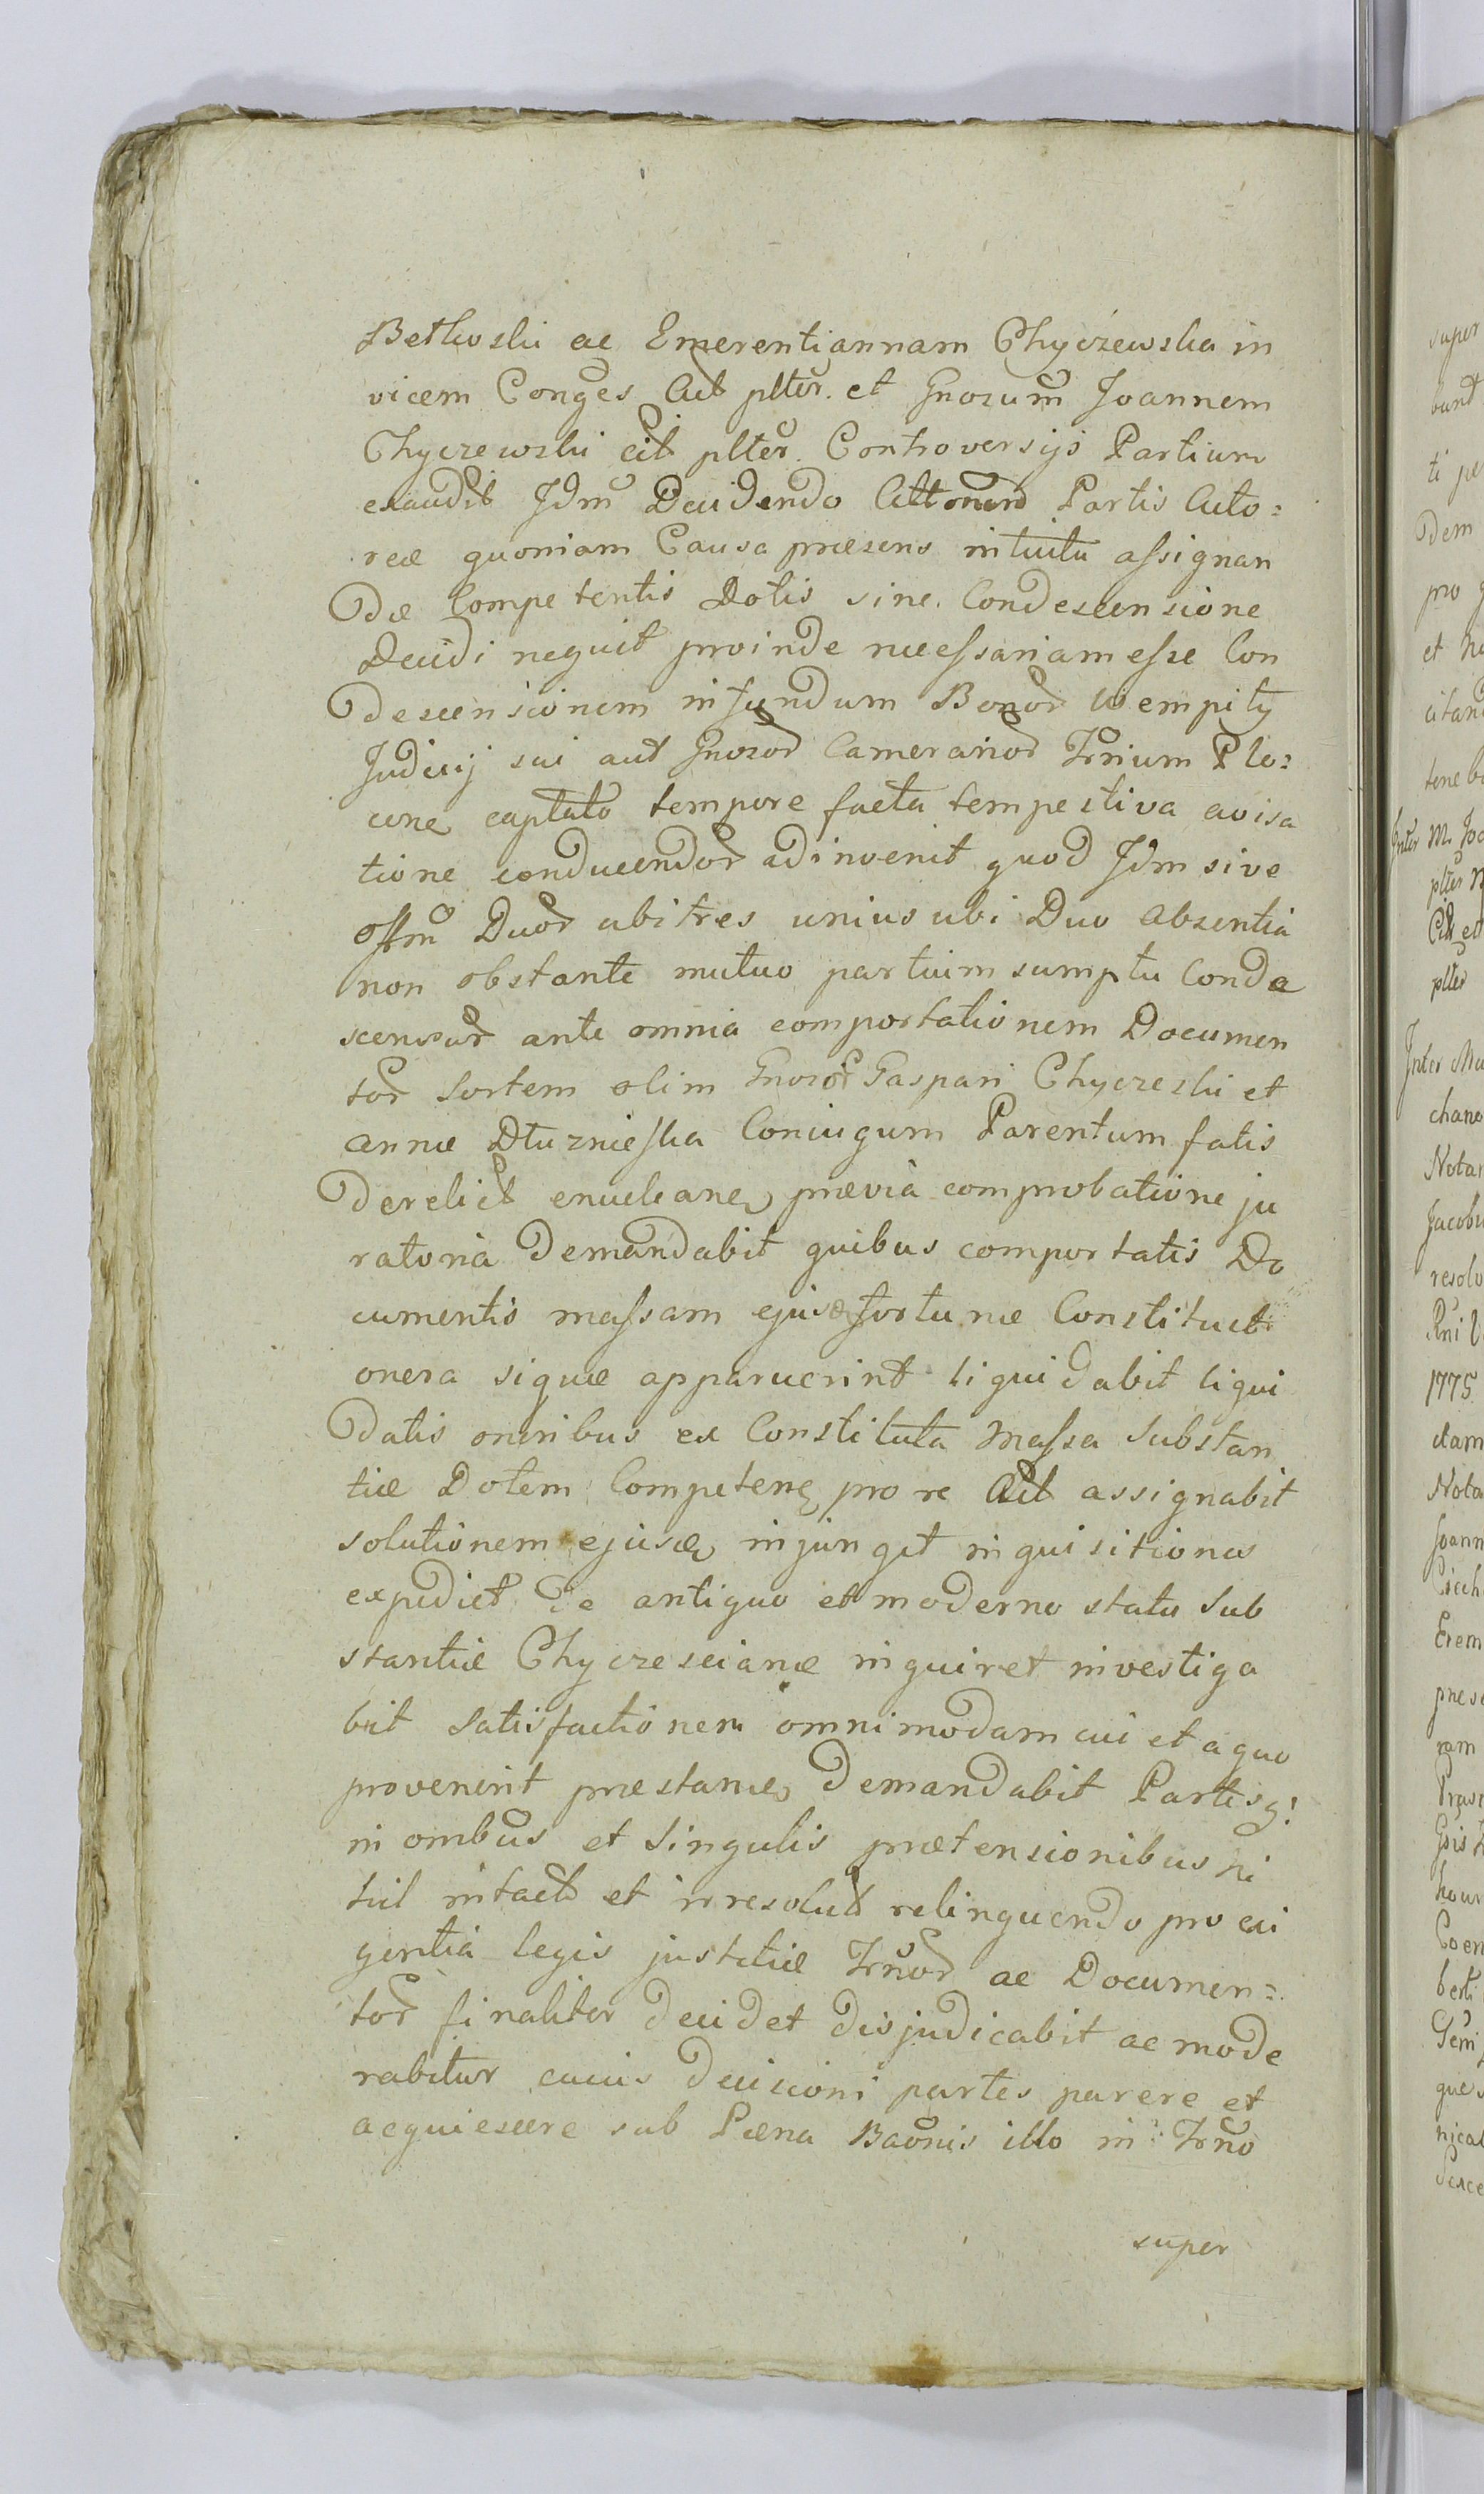 Bethoski ac Emerentiannam Chyczewska in
vicem Conges Act plter. et Gnorum Joannem
Chyczewski cit plter. Controversijs Partium
exaudit Jdm Decidendo Attonem Partis Acto:
reæ quoniam Causa præsens intuitu assignan
dæ Competentis Dotis sine Condescensione
Decidi nequit proinde necessariam esse Con
descensionem in fundum Bonor Wempity
Judicij sui aut Gnoror Camerarior Trrium Plo:
cen captato tempore facta tempestiva avisa
tione conducendor adinvenit quod Jdm sive
Offm Duor ubi tres unius ubi Duo Absentia
non obstante mutuo partium sumptu Conde
scensur ante omnia comportationem Documen
tor Sortem olim Gnoror Gaspari Chyczeski et
Annæ Dłuznieska Coniugum Parentum fatis
derelict enuclean prævia comprobatione ju
ratoria demandabit quibus comportatis Do
cumentis massam ejusd fortunæ Constituet
onera siquæ apparuerint liquidabit liqui
datis oneribus ex Constituta Massa Substan
tiæ Dotem Competen pro re Act assignabit
solutionem ejusd injunget inquisitiones
expediet de antiquo et moderno statu Sub
stantiæ Chyczescianæ inquiret investiga
bit Satisfactionem omnimodam cui et a quo
provenerit præstan demandabit Partesq:
in ombus et Singulis prætensionibus ni
hil intact et irresolut relinquendo pro exi
gentia legis justitiæ Trnor ac Documen:
tor finaliter decidet disjudicabit ac mode
rabitur cuius decisioni partes parere et
acquiescere sub Pæna Baonis illo in Trno
super
super
ti
Dem
pro
et
Inter M.
plter
Cit et
plter
Inter
resolv
1775
ram